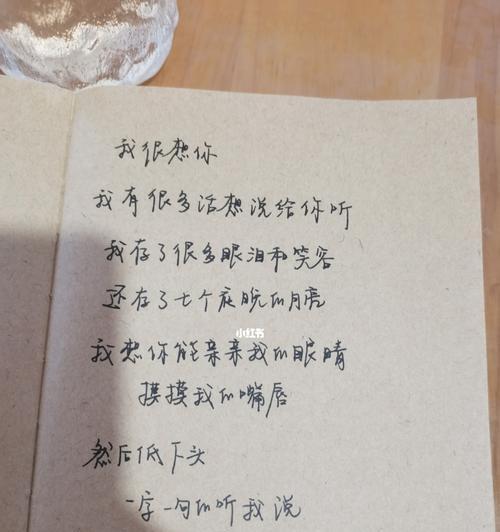 我很想你
我有很多话想说给你听
我存了很多眼泪和笑容
还存了七个夜晚的月亮
小红书
我想你能亲亲我的眼睛
摸摸我的嘴唇
然后低下头
一字一句的听我说